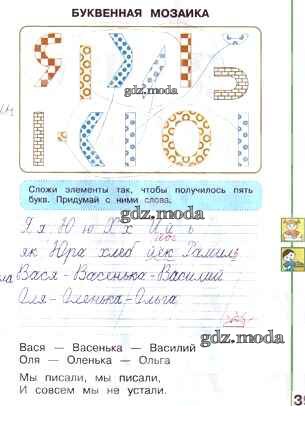 БУКВЕННАЯ МОЗАИКА
gdz.moda
Сложи элементы так, чтобы получилось пять
букв. Придумай с ними слова.
gdz.moda
Я я Ю ю Х х Й й ь
як Юра хлеб йог
Вася – Васенька – Василий
Оля – Оленька – Ольга
Вася — Васенька — Василий
gdz.moda
Оля — Оленька — Ольга
Мы писали, мы писали,
И совсем мы не устали.